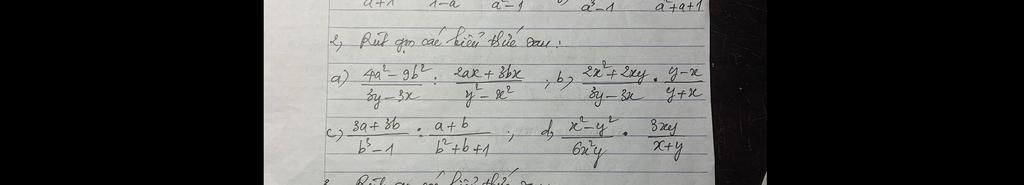 a+1 1-a a²-1 a³-1 a²+a+1
2, Rút gọn các biểu thức sau:
a) (4a² - 9b²)/(3y - 3x) : (2ax + 3bx)/(y² - x²) ; b, (2x² + 2xy)/(3y - 3x) . (y - x)/(y + x)
c, (3a + 3b)/(b³ - 1) : (a + b)/(b² + b + 1) ; d, (x² - y²)/(6x²y) . (3xy)/(x + y)
Rút gọn các biểu thức sau